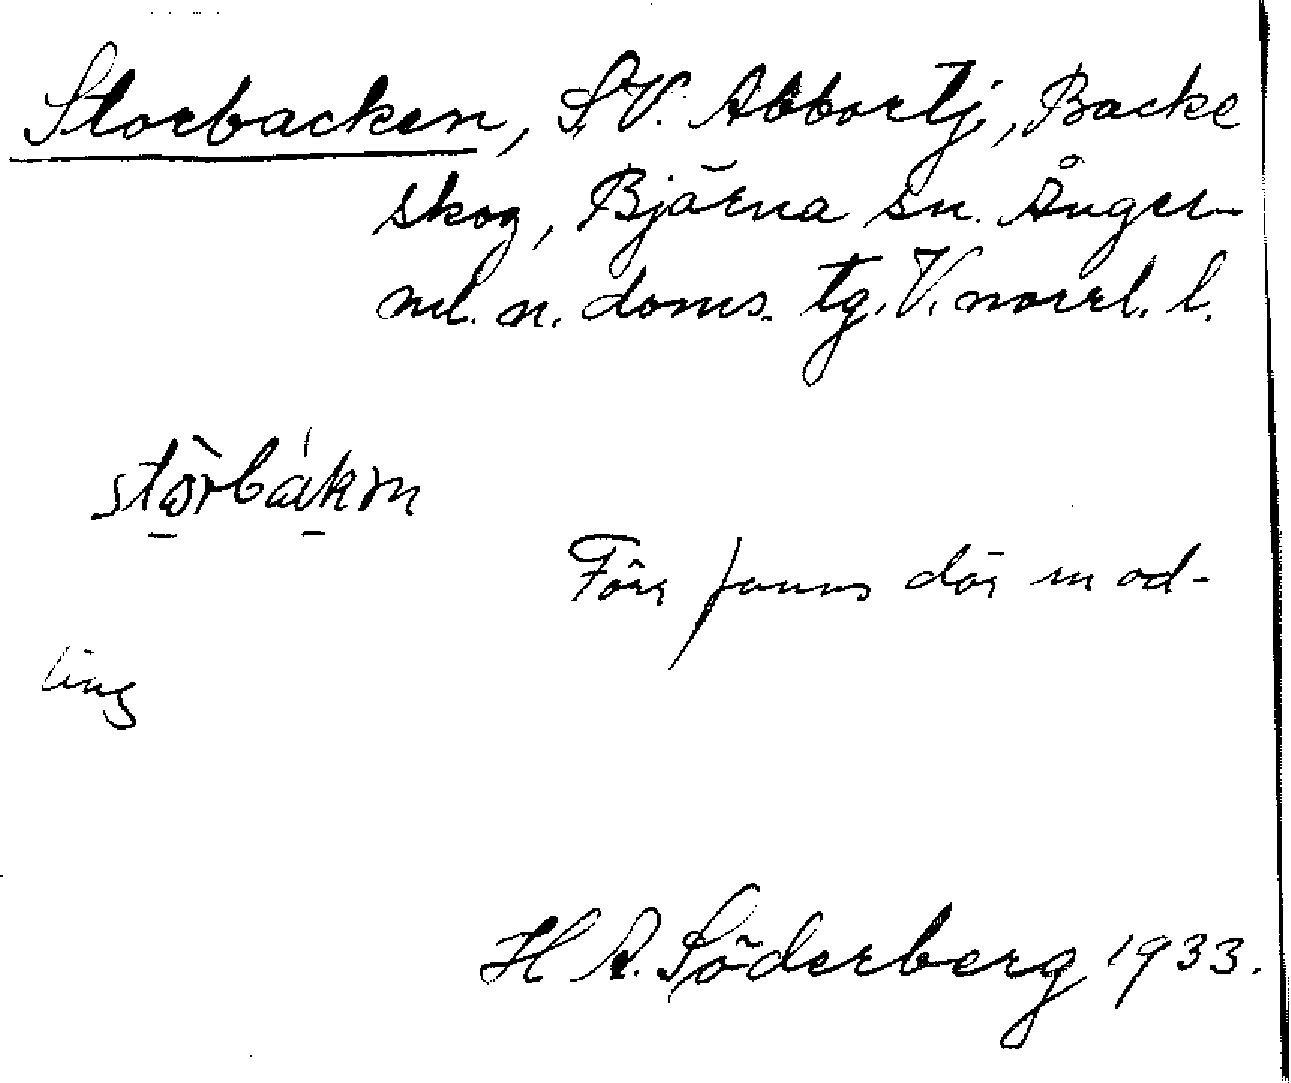 Storbacken, S.V. Abbortj., Backe
skog, Bjärna sn. Ånger-
ml. n. doms. tg. V. norrl. l.
stòrbákm̥
Förr fanns där en od-
ling
H A. Söderberg 1933.